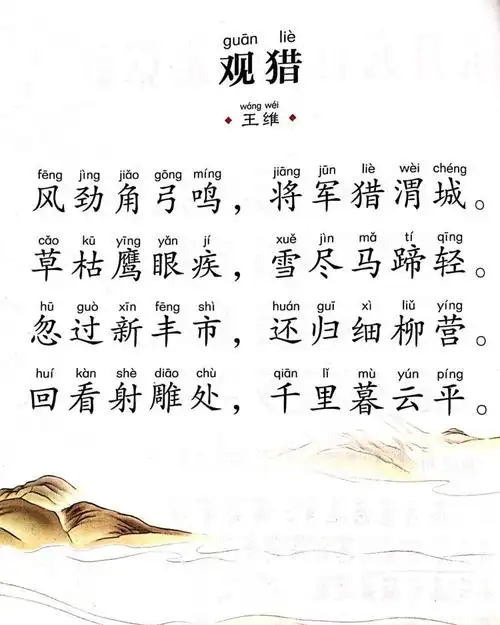 guān liè
观猎
wáng wéi
王维
fēng jìng jiǎo gōng míng jiāng jūn liè wèi chéng
风劲角弓鸣，将军猎渭城。
cǎo kū yīng yǎn jí xuě jìn mǎ tí qīng
草枯鹰眼疾，雪尽马蹄轻。
hū guò xīn fēng shì huán guī xì liǔ yíng
忽过新丰市，还归细柳营。
huí kàn shè diāo chù qiān lǐ mù yún píng
回看射雕处，千里暮云平。